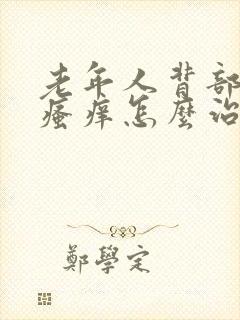 老年人背部
瘙痒怎麼治
鄭學定